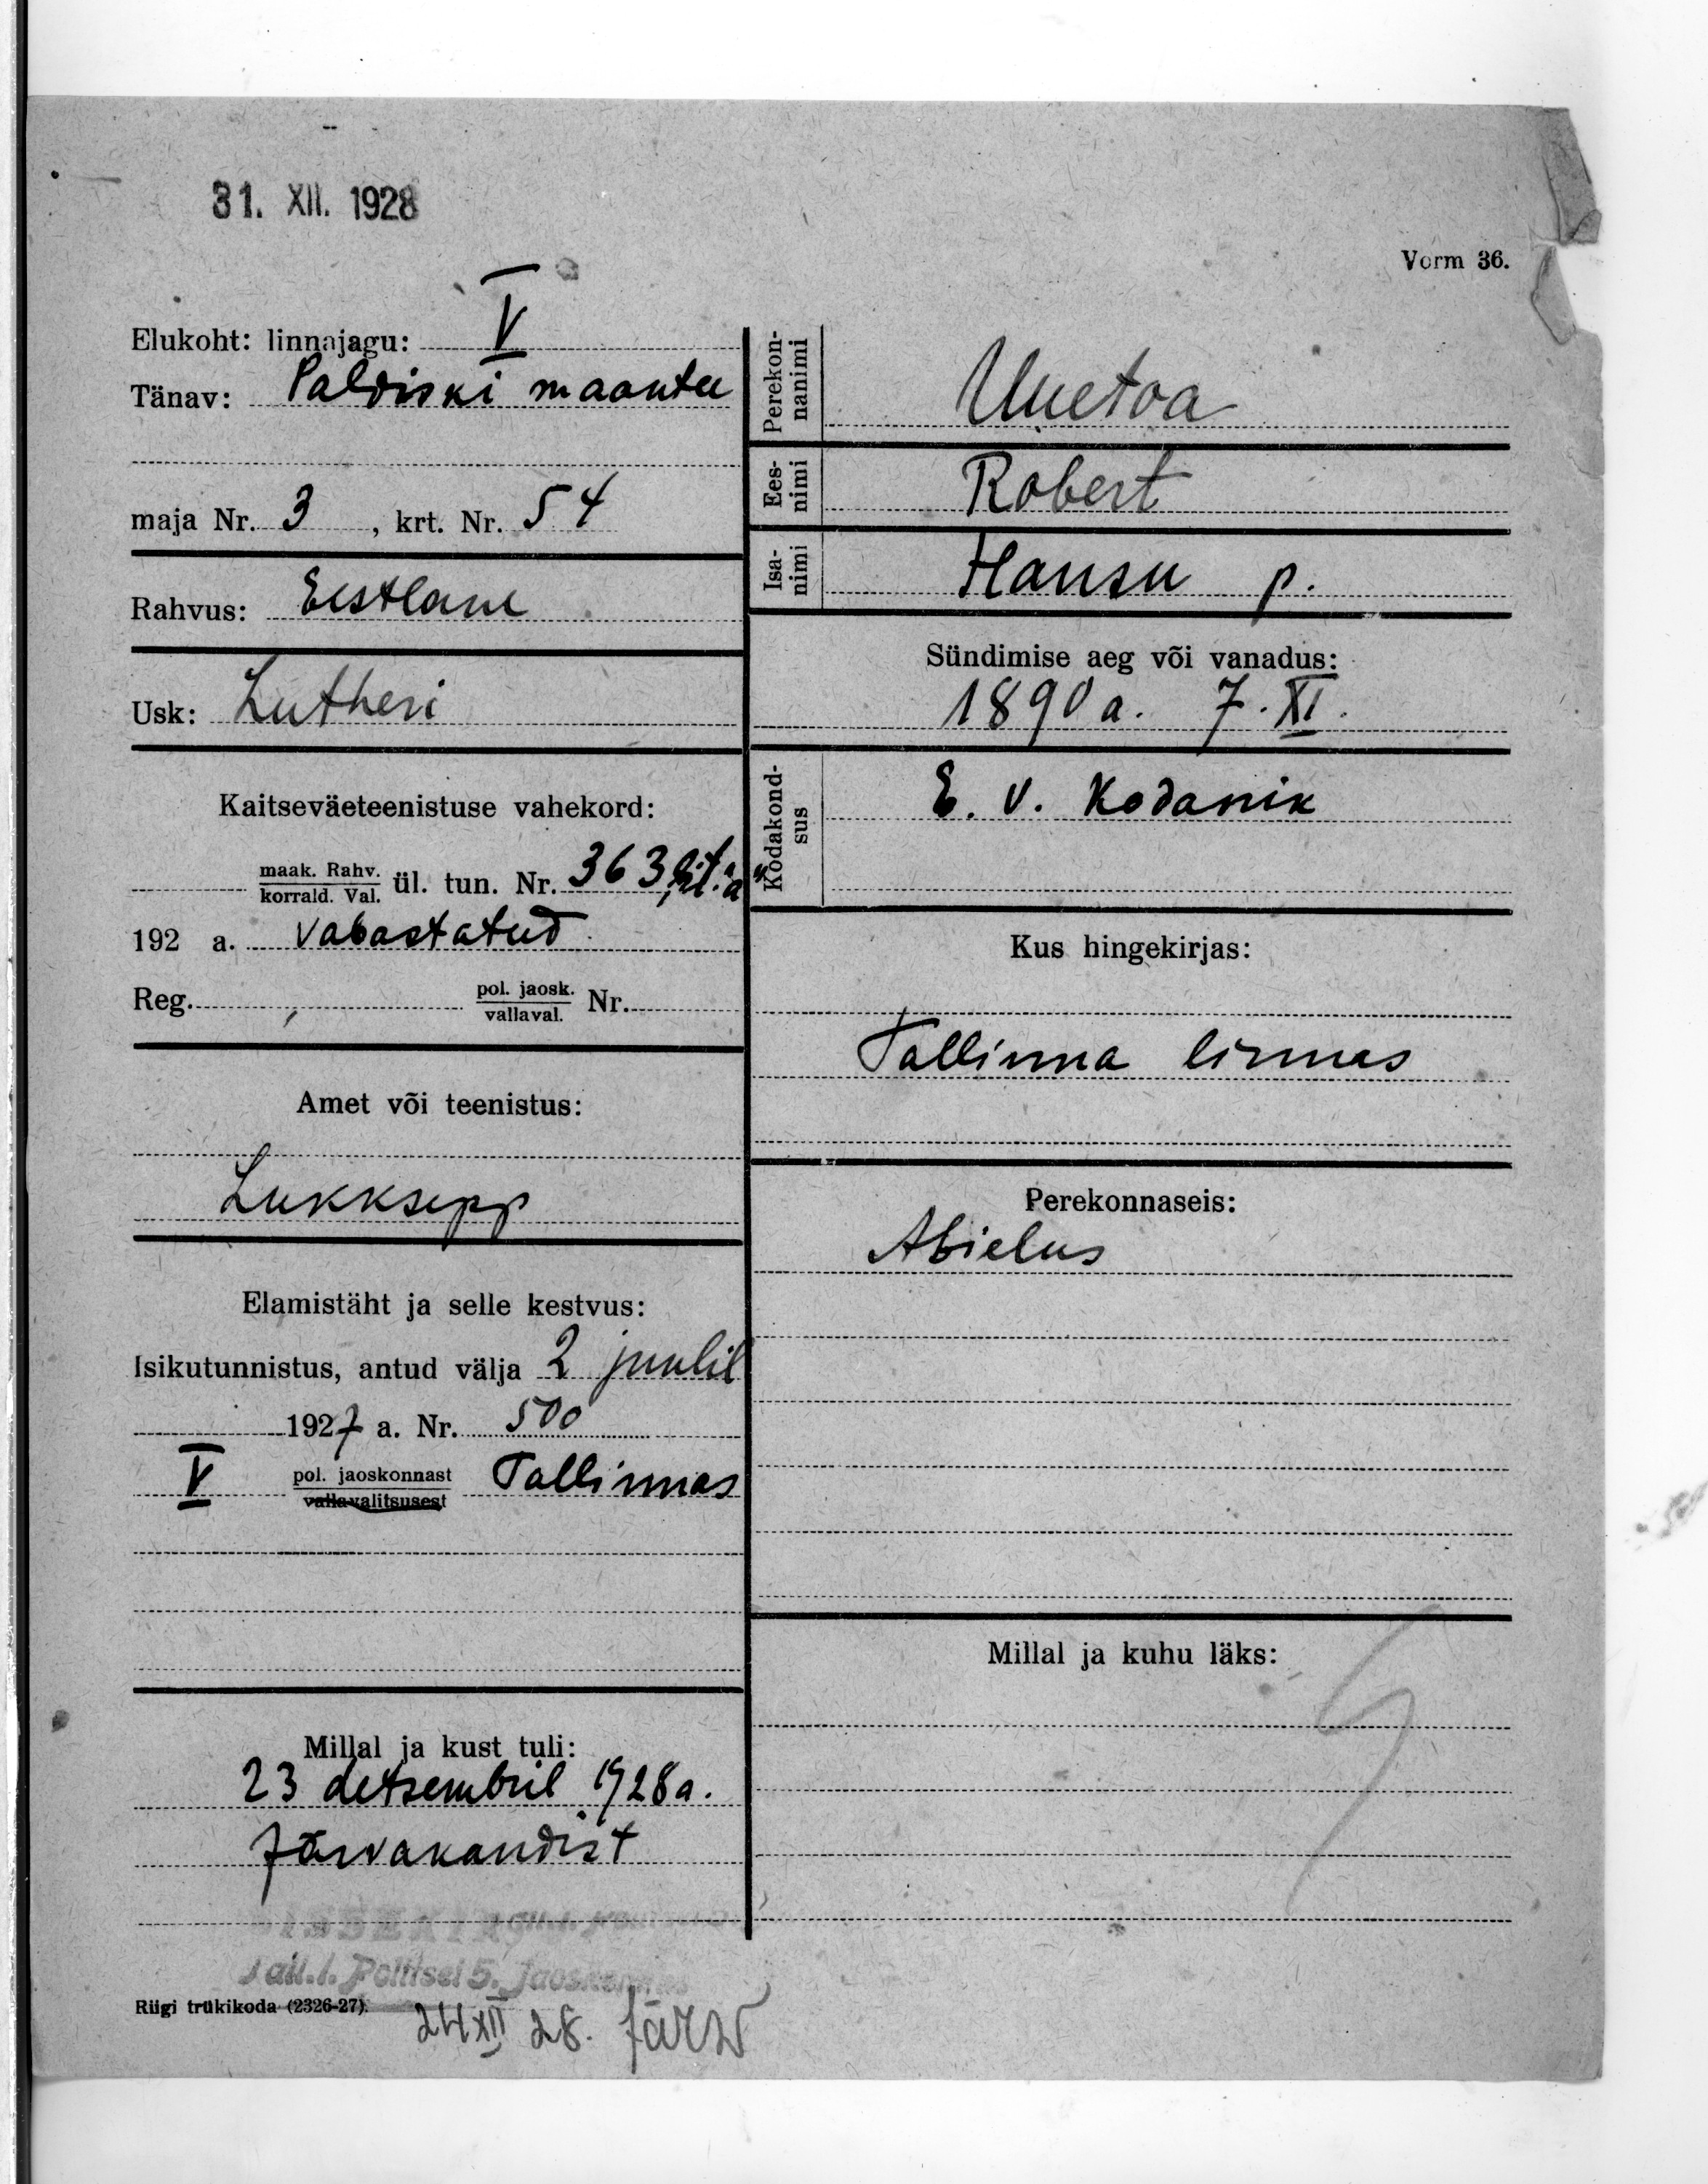 31. XII. 1928
Vorm 36.
Elukoht: linnajagu: V
Tänav: Paldiski maantee
maja Nr. 3, krt. Nr. 54
Rahvus: Eestlane
Usk: Lutheri
Kaitseväeteenistuse vahekord:
maak. Rahv.
korrald. Val. ül. tun. Nr. 363, lit. "a"
192 a. vabastatud
Reg. pol. jaosk.
vallaval. Nr.
Amet või teenistus:
Lukksepp
Elamistäht ja selle kestvus:
Isikutunnistus, antud välja 2 juulil
1927 a. Nr. 500
V pol. jaoskonnast Tallinnas
vallavalitsusest
Millal ja kust tuli:
23 detsembril 1928 a.
Järvakandist
Perekon-
nanimi
Uuetoa
Ees-
nimi
Robert
Isa-
nimi
Hansu p.
Sündimise aeg või vanadus:
1890 a. 7. XI.
Kodakond-
sus
E. V. Kodanik
Kus hingekirjas:
Tallinna linnas
Perekonnaseis:
Abielus
Millal ja kuhu läks:
Tall.l. Politsei 5. jaoskonnas
Riigi trükikoda (2326-27).
24 XII 28. Järw